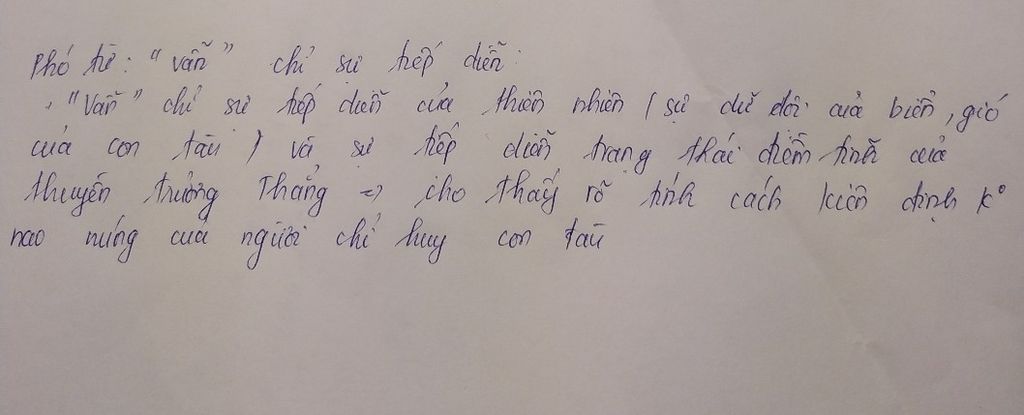 Phó từ: "vẫn" chỉ sự tiếp diễn:
. "Vẫn" chỉ sự tiếp diễn của thiên nhiên (sự dữ dội của biển, gió
của con tàu) và sự tiếp diễn trạng thái điềm tĩnh của
thuyền trưởng Thắng => cho thấy rõ tính cách kiên định k°
nao núng của người chỉ huy con tàu